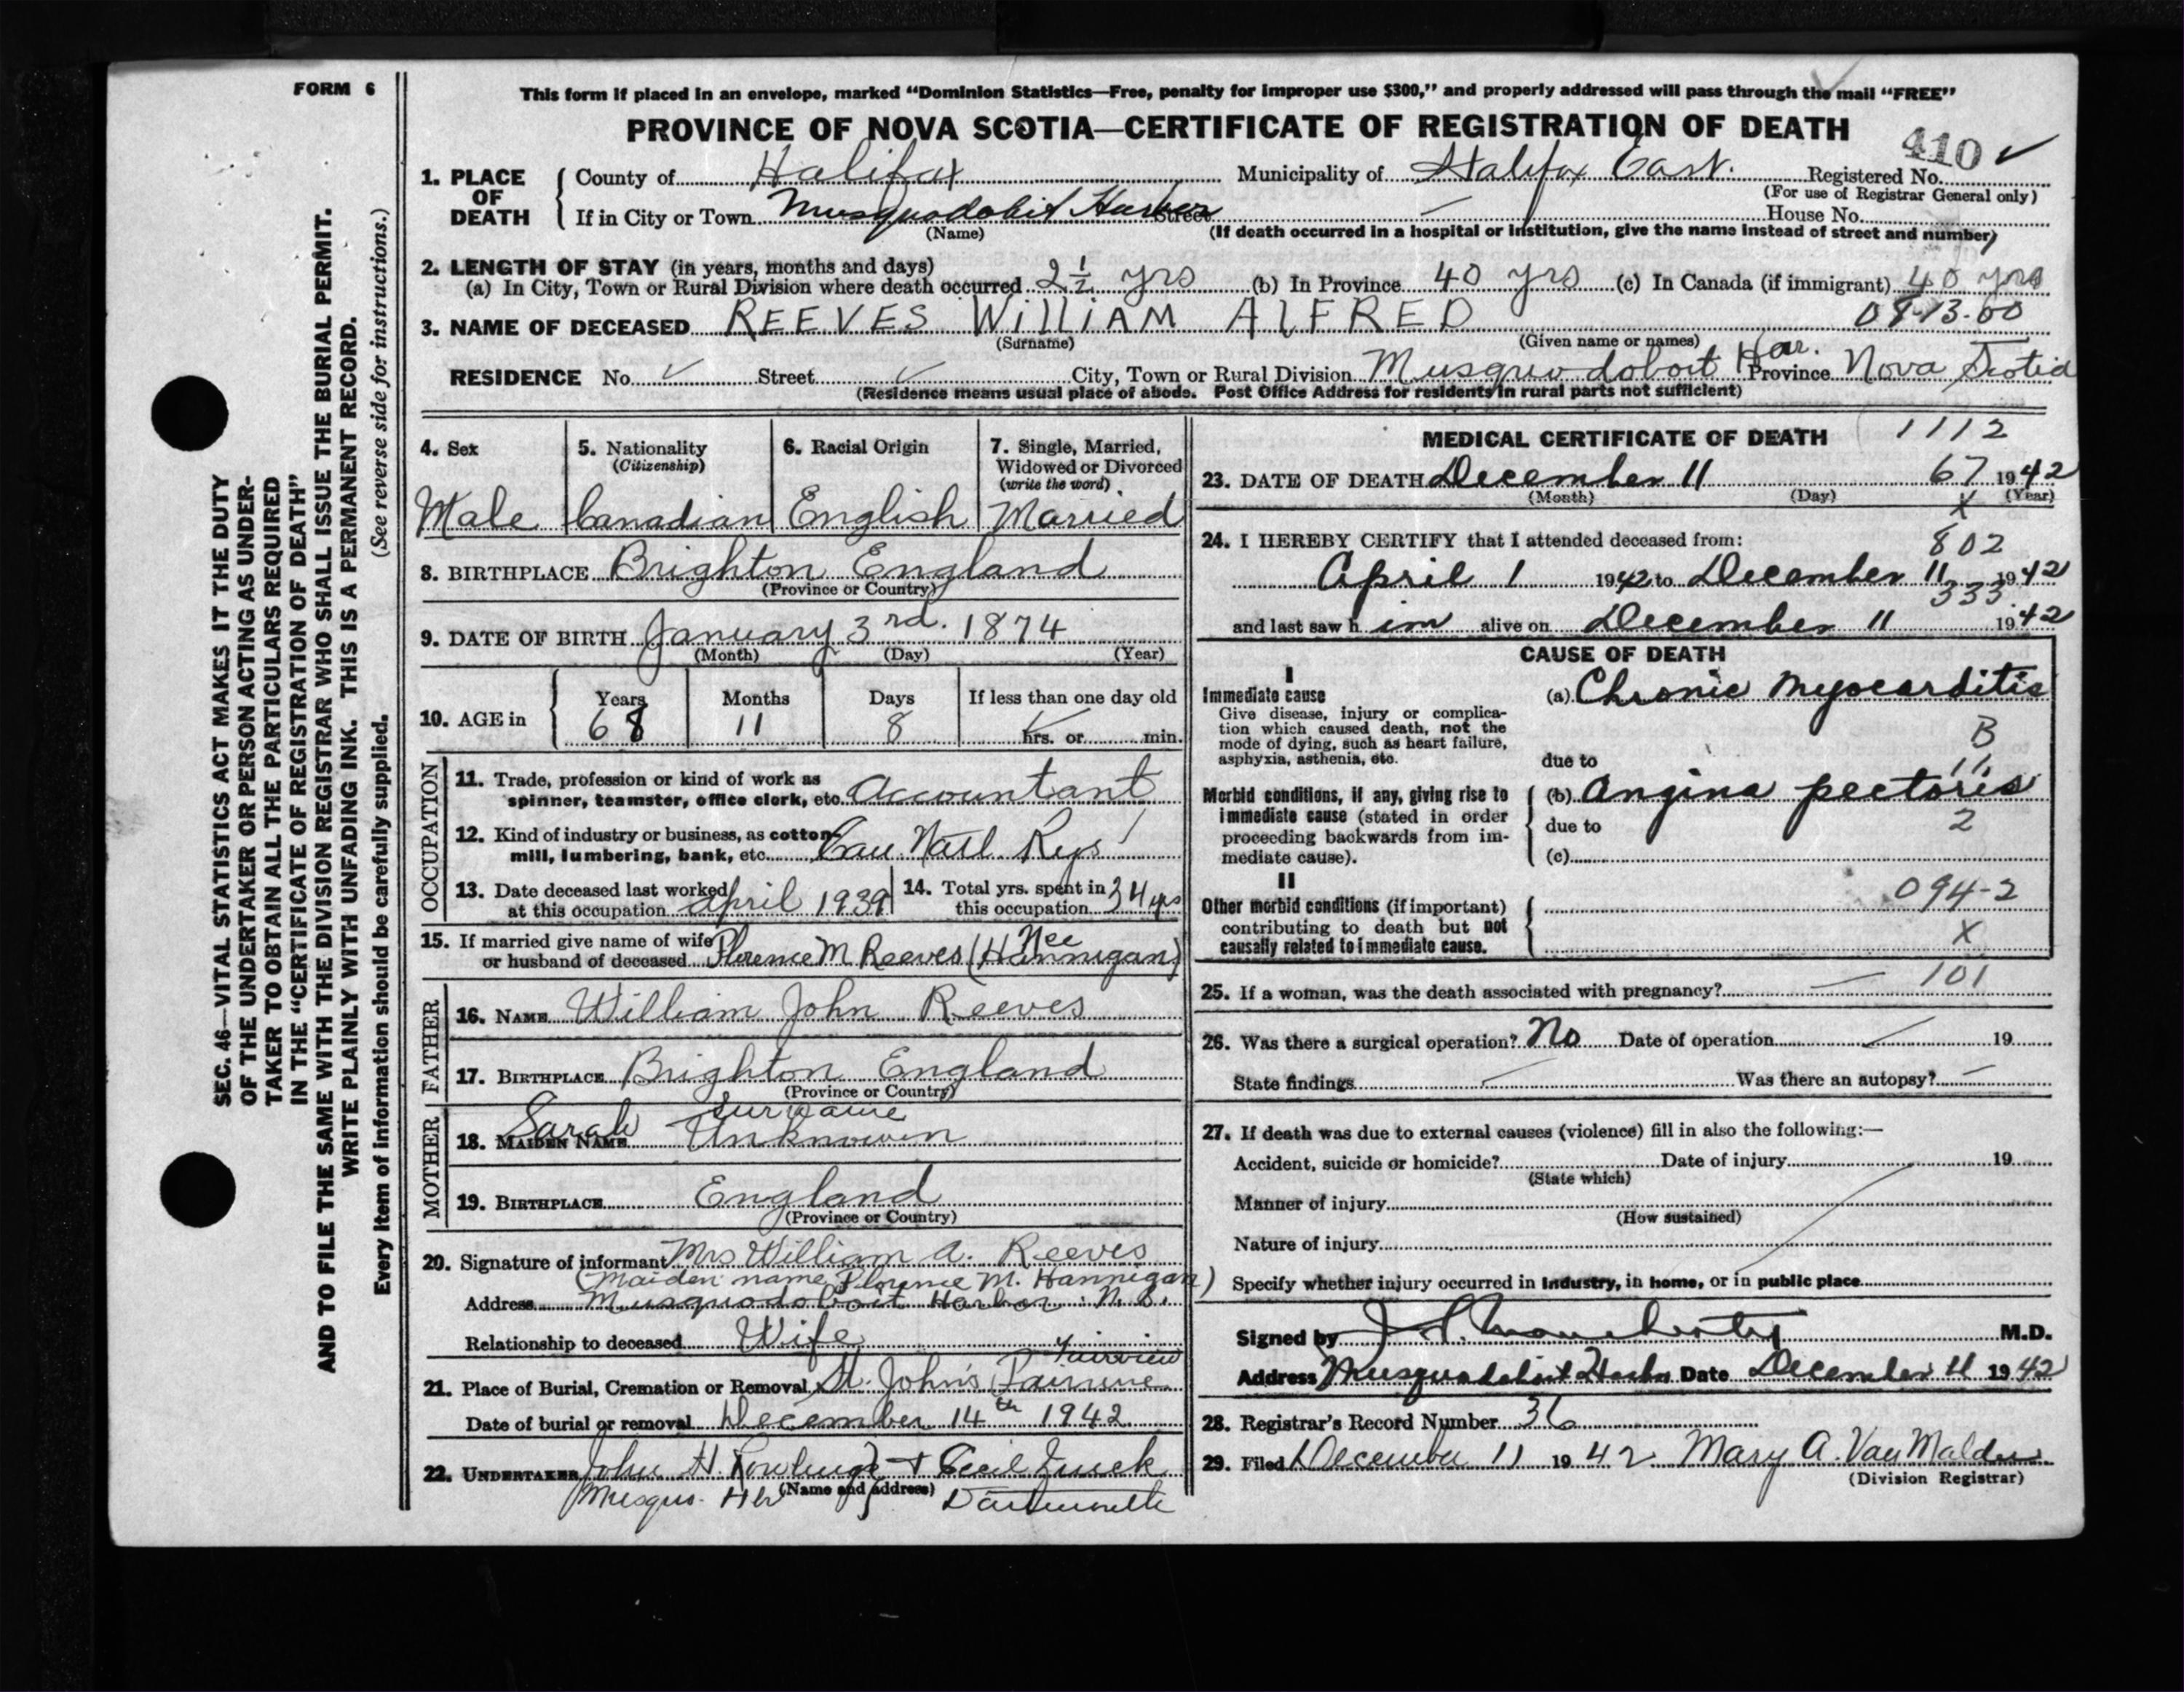 FORM 6
This form if placed in an envelope, marked “Dominion Statistics—Free, penalty for improper use $300,” and properly addressed will pass through the mail “FREE”
PROVINCE OF NOVA SCOTIA—CERTIFICATE OF REGISTRATION OF DEATH
410 ✓
1. PLACE OF DEATH County of Halifax Municipality of Halifax East. Registered No.
(For use of Registrar General only)
If in City or Town Musquodobit Harbor Street — House No.
(Name) (If death occurred in a hospital or institution, give the name instead of street and number)
2. LENGTH OF STAY (in years, months and days)
(a) In City, Town or Rural Division where death occurred 2½ yrs (b) In Province 40 yrs (c) In Canada (if immigrant) 40 yrs
3. NAME OF DECEASED REEVES WilliAM AlFRED 0813.00
(Surname) (Given name or names)
RESIDENCE No. ✓ Street ✓ City, Town or Rural Division Musquodoboit Har. Province Nova Scotia
(Residence means usual place of abode. Post Office Address for residents in rural parts not sufficient)
4. Sex 5. Nationality (Citizenship) 6. Racial Origin 7. Single, Married, Widowed or Divorced (write the word)
Male Canadian English Married
8. BIRTHPLACE Brighton England
(Province or Country)
9. DATE OF BIRTH January 3rd. 1874
(Month) (Day) (Year)
10. AGE in Years Months Days If less than one day old
68 11 8 hrs. or min.
OCCUPATION
11. Trade, profession or kind of work as
spinner, teamster, office clerk, etc. Accountant
12. Kind of industry or business, as cotton
mill, lumbering, bank, etc. Can Natl Rys
13. Date deceased last worked
at this occupation April 1939
14. Total yrs. spent in
this occupation 34 yrs
15. If married give name of wife
or husband of deceased Florence M Reeves (Nee Hannigan)
FATHER
16. NAME William John Reeves
17. BIRTHPLACE Brighton England
(Province or Country)
MOTHER
18. MAIDEN NAME Sarah surname Unknowen
19. BIRTHPLACE England
(Province or Country)
20. Signature of informant Mrs William A. Reeves
(Maiden name Florence M. Hannigan)
Address Musquodoboit Harbor. N.S.
Relationship to deceased Wife
Fairview
21. Place of Burial, Cremation or Removal St. John's
Date of burial or removal December 14th 1942
22. UNDERTAKER John H. Rowlings + Cecil Zinck
(Name and address)
Musquo. Hbr Dartmouth
MEDICAL CERTIFICATE OF DEATH 1112
23. DATE OF DEATH December 11 67 1942
(Month) (Day) (Year)
X
24. I HEREBY CERTIFY that I attended deceased from: 802
April 1 1942 to December 11 1942
333
and last saw him alive on December 11 1942
CAUSE OF DEATH
I
Immediate cause (a) Chronic Myocarditis
Give disease, injury or complica-
tion which caused death, not the
mode of dying, such as heart failure,
asphyxia, asthenia, etc.
B
due to 11
Morbid conditions, if any, giving rise to
immediate cause (stated in order
proceeding backwards from im-
mediate cause).
(b) Angina pectoris
due to 2
(c)
II
Other morbid conditions (if important)
contributing to death but not
causally related to immediate cause.
094-2
X
25. If a woman, was the death associated with pregnancy? — 101
26. Was there a surgical operation? No Date of operation 19
State findings — Was there an autopsy? —
27. If death was due to external causes (violence) fill in also the following:—
Accident, suicide or homicide? Date of injury 19
(State which)
Manner of injury
(How sustained)
Nature of injury
Specify whether injury occurred in industry, in home, or in public place
Signed by M.D.
Address Musquodoboit Harbor Date December 11 1942
28. Registrar's Record Number 36
29. Filed December 11 1942 Mary A. Van Malder
(Division Registrar)
SEC. 46—VITAL STATISTICS ACT MAKES IT THE DUTY
OF THE UNDERTAKER OR PERSON ACTING AS UNDER-
TAKER TO OBTAIN ALL THE PARTICULARS REQUIRED
IN THE “CERTIFICATE OF REGISTRATION OF DEATH”
AND TO FILE THE SAME WITH THE DIVISION REGISTRAR WHO SHALL ISSUE THE BURIAL PERMIT.
WRITE PLAINLY WITH UNFADING INK. THIS IS A PERMANENT RECORD.
(See reverse side for instructions.)
Every item of information should be carefully supplied.